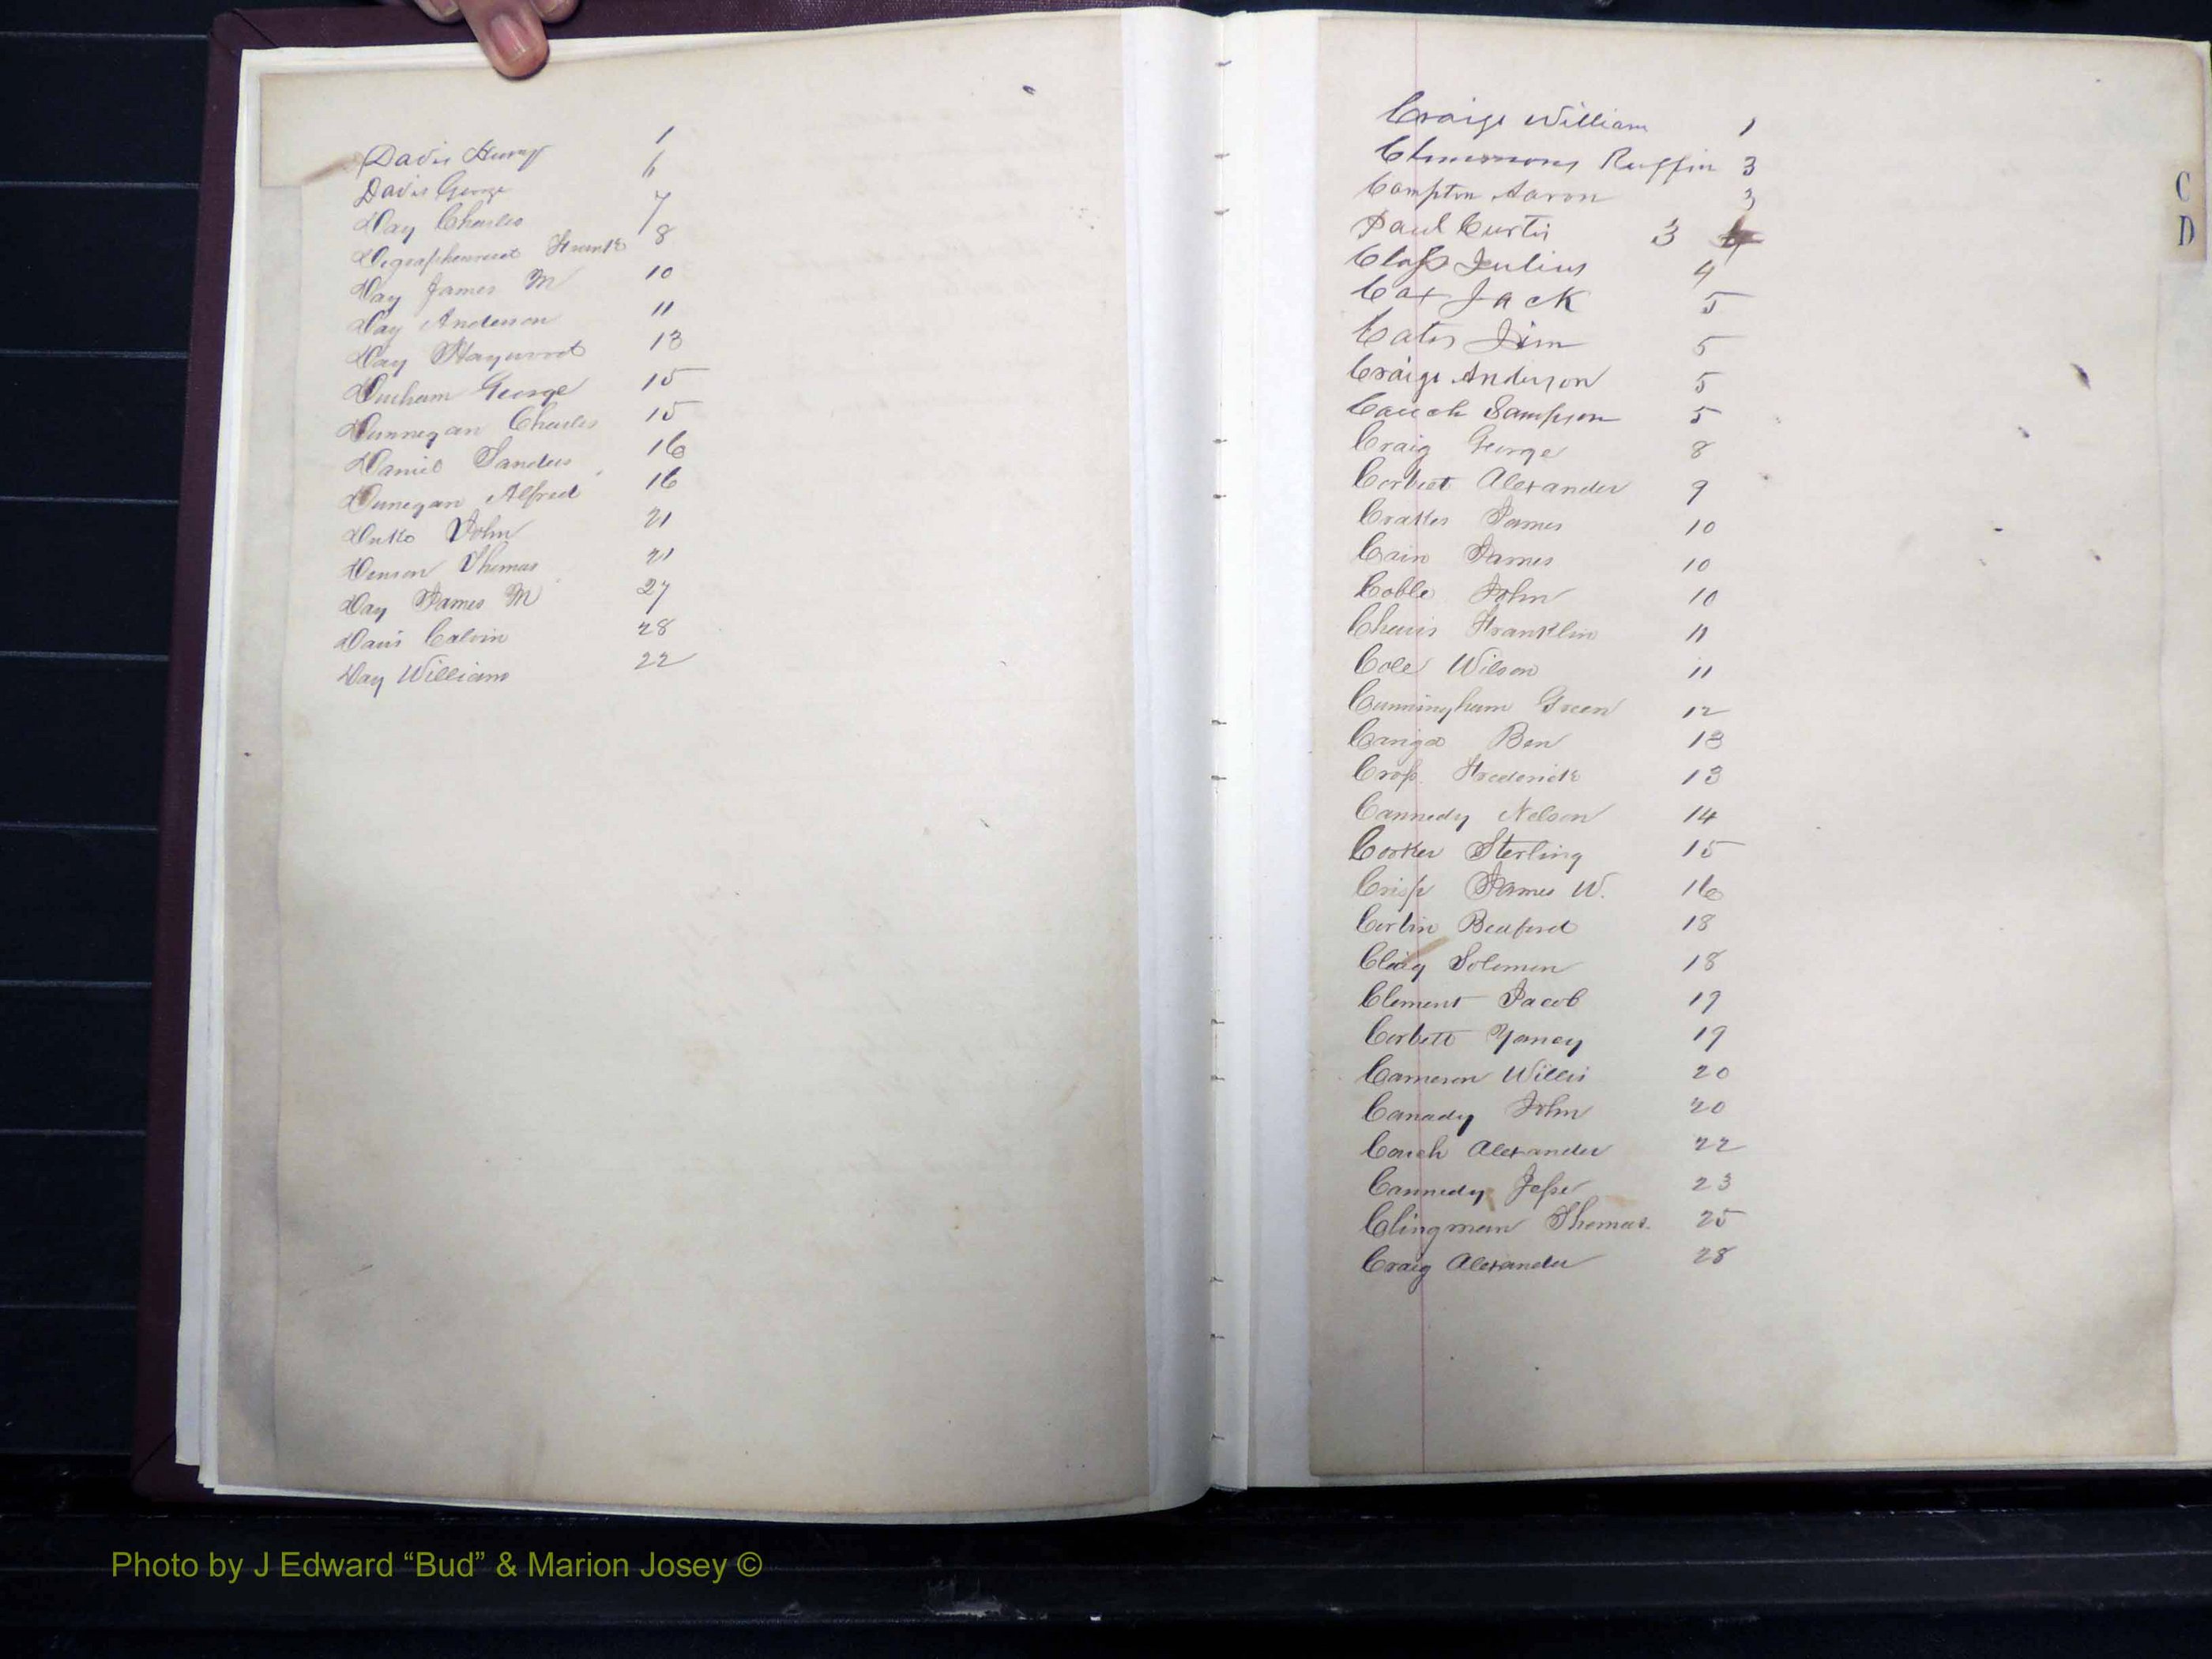 Davis Hump 1
Davis George 6
Day Charles 7
Degraphenreid Frank 8
Day James M 10
Day Anderson 11
Day Haywood 13
Durham George 15
Dunnegan Charles 15
Daniel Sanders 16
Dunegan Alfred 16
Duke John 21
Denson Thomas 21
Day James M 27
Davis Calvin 28
Day William 22
Craige William 1
Clemmons Ruffin 3
Compton Aaron 3
Paul Curtis 3
Class Julius 4
Cox Jack 5
Cates Jim 5
Craige Anderson 5
Couch Sampson 5
Craig George 8
Corbet Alexander 9
James 10
Cain James 10
Coble John 10
Chavis Franklin 11
Cole Wilson 11
Cunningham Green 12
Ben 13
Cross Frederick 13
Cannedy Nelson 14
Corker Sterling 15
Crisp James W. 16
Corbin Beauford 18
Clay Solomon 18
Clement Jacob 19
Corbett Yancy 19
Cameron Willis 20
Canady John 20
Couch Alexander 22
Cannedy Jesse 23
Clingman Thomas 25
Craig Alexander 28
C
D
Photo by J Edward “Bud” & Marion Josey ©